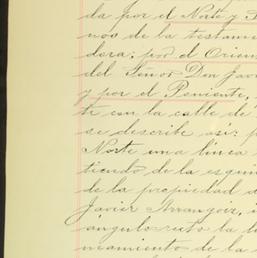 da por el Norte y
nos de la testamen
dera; por el Orien
del Señor Don Jav
y por el Poniente,
te con la calle de
se describe así: p
Norte una línea
tiendo de la esqui
de la propiedad d
Javier Arrangoiz,
ángulo recto la
neamiento de la